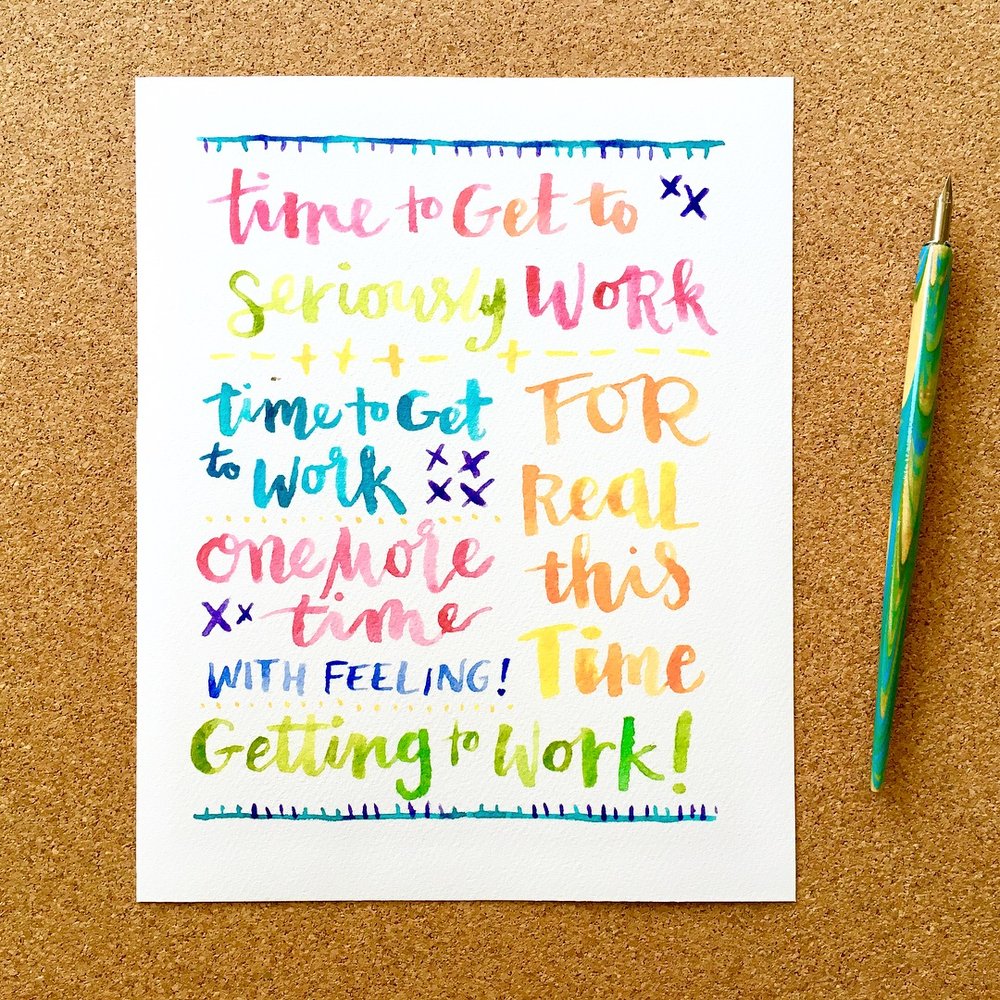 time to Get to
seriously WoRk
time to Get
to Work
one More
time
WITH FEELING!
FOR
ReaL
this
Time
Getting to Work!